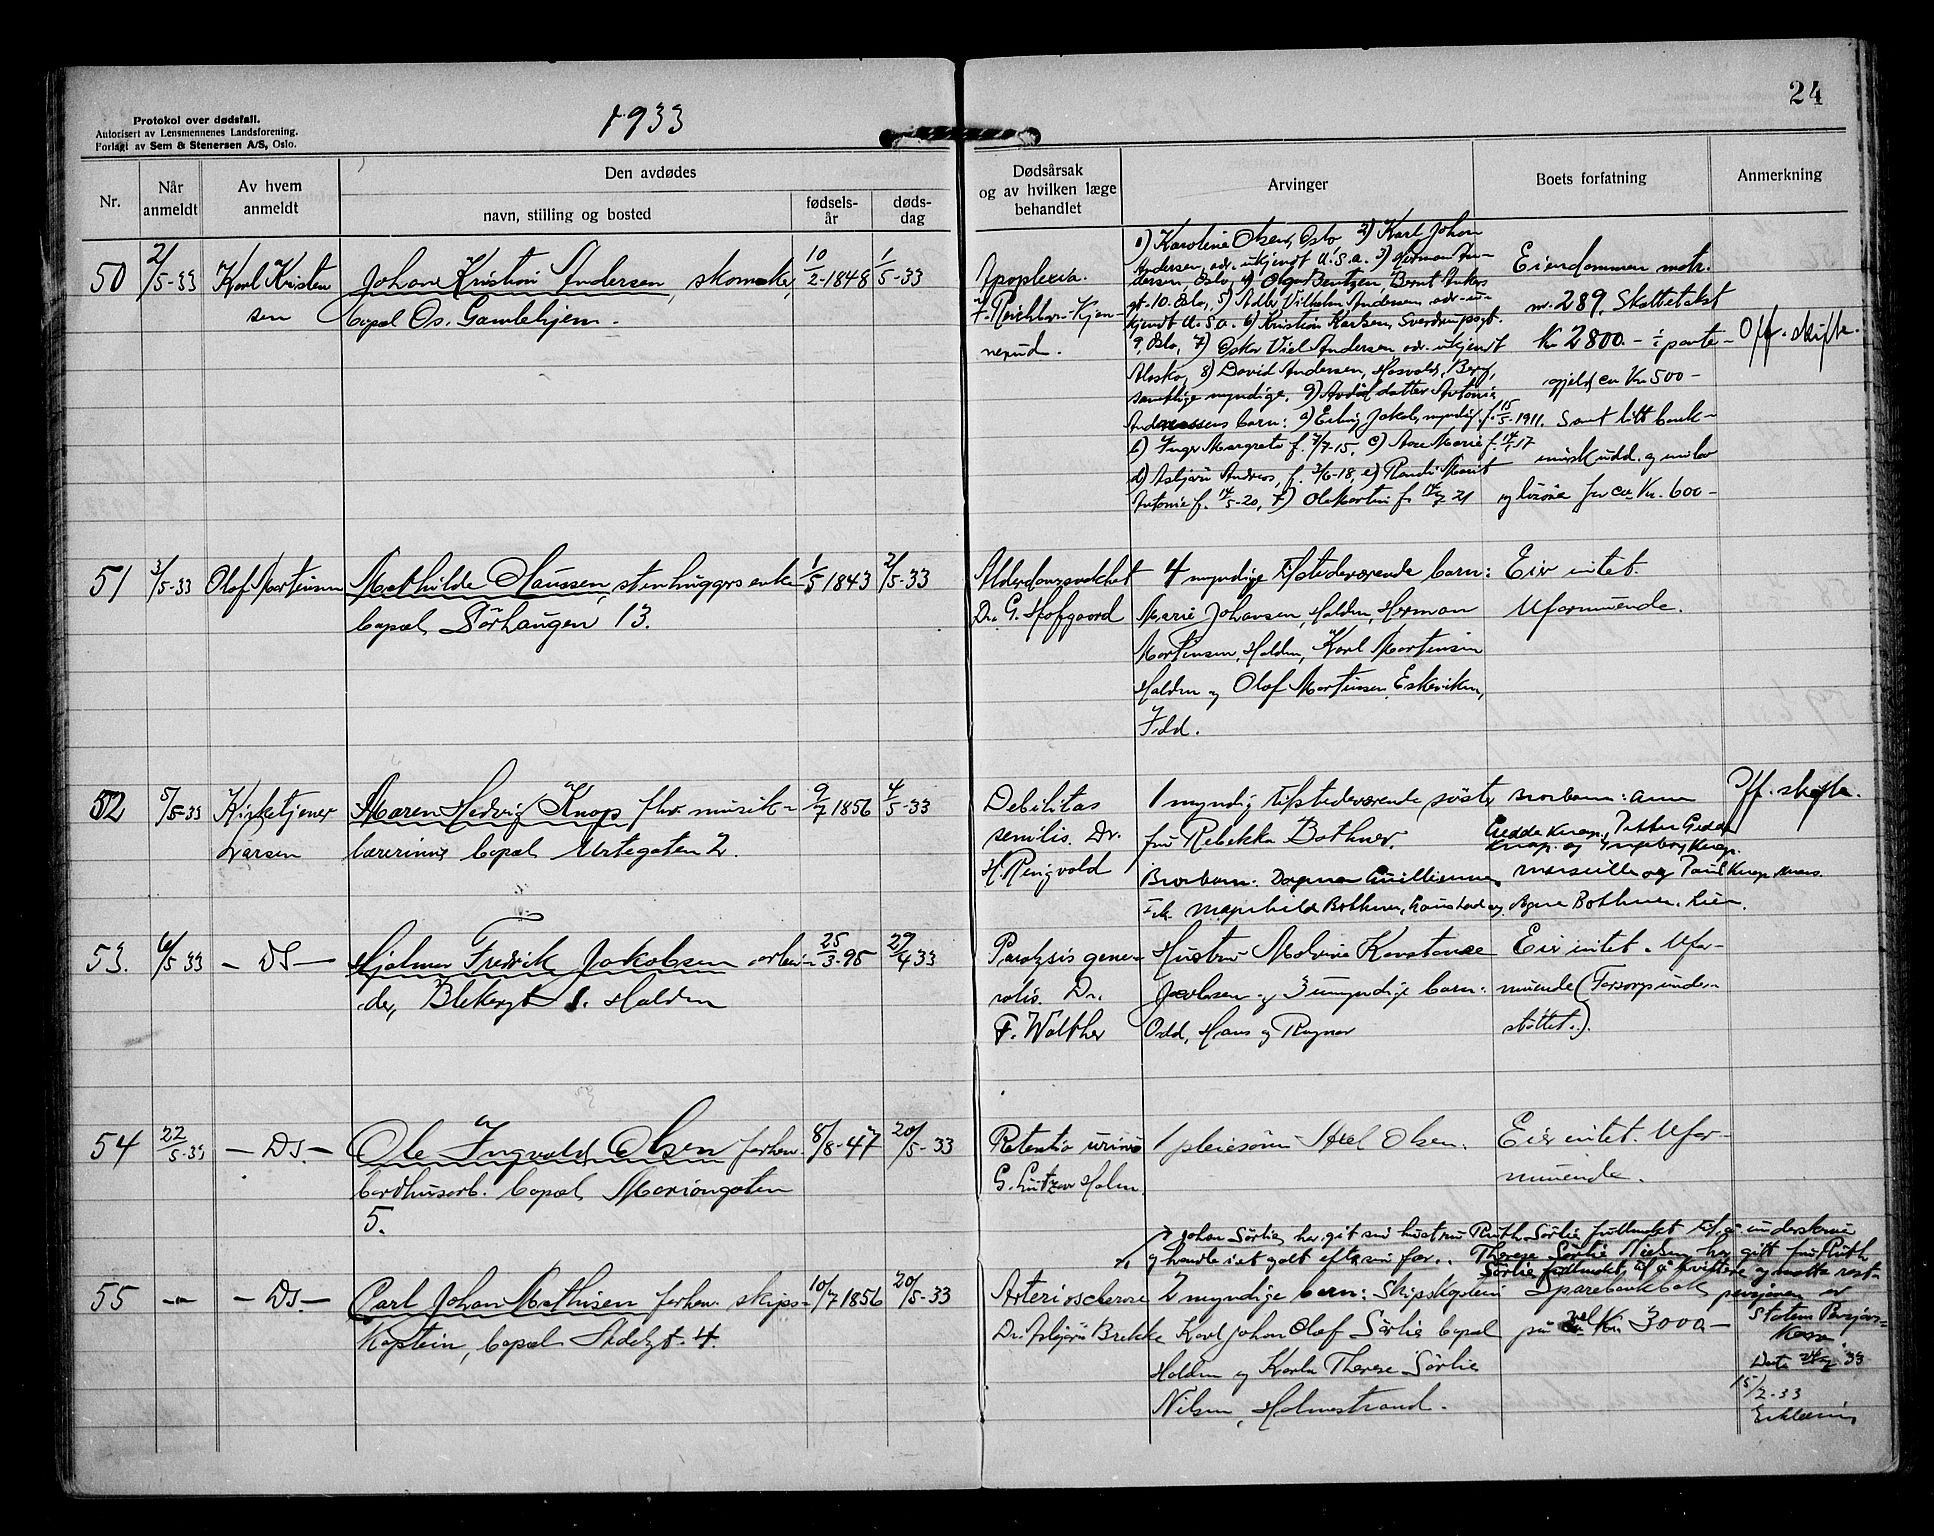 Protokol over dødsfall.
Autorisert av Lensmennenes Landsforening.
Forlagt av Sem & Stenersen A/S, Oslo.
1933
24
Nr.
Når anmeldt
Av hvem anmeldt
Den avdødes
navn, stilling og bosted
fødsels-år
døds-dag
Dødsårsak og av hvilken læge behandlet
Arvinger
Boets forfatning
Anmerkning
50 2/5-33 Karl Kristensen
Johan Kristian Andersen, skomaker,
bopæl Os. Gamlehjem.
10/2-1848 1/5-33
Apoplexia.
1) Karoline Olsen, Oslo 2) Karl Johan
Andersen, adr. ukjendt U.S.a. 3) Herman An-
dersen, Oslo, 4) Olga Bentzen, Bernt Ankers
gt. 10. Oslo, 5) Vilhelm Andersen, adr. u-
kjendt U.S.a. 6) Kristian Karlsen, Sverdrupsgt.
9, Oslo, 7) Oskar Andersen adr. ukjendt
Alaska, 8) David Andersen, Berg,
samtlige myndige. 9) Avdød datter Antonie
Andreassens barn: a) Erling Jakob, myndig f. 15/5-1911.
b) Inger Margrete f. 7/7-15, c) Marie f. 17
d) Asbjørn Andreas, f. 3/6-18, e) Randi Marit
Antonie f. 5-20, f) Ole Martin f. 21
Eiendommen matr.
nr. 289. Skattetakst
Kr 2800.- ÷ pante-
gjeld ca Kr. 500-
Samt litt bank-
innskudd og innbo
og løsøre for ca Kr. 600-
Off. skifte.
51 3/5-33 Olaf Martinsen
Mathilde Hanssen, stenhuggers enke
bopæl Sørhaugen 13.
1/5 1843 2/5-33
Alderdomssvakhet
Dr. G. Hofgaard
4 myndige tilstedeværende barn:
Marie Johansen, Halden, Herman
Martinsen, Halden, Karl Martinsen
Halden og Olaf Martinsen, Eskeviken,
Idd.
Eier intet.
Uformuende.
52 5/5-33 Kirketjener
Larsen
Maren Hedvig Knap, fhv. musik-
lærerinne bopæl Urtegaten 2.
9/7 1856 4/5-33
Debilitas
senilis. Dr.
H. Ringvold
1 myndig tilstedeværende søster
fru Rebekka Bothner.
Brorbarn: Dagmar
Magnhild Bothner,
Brorbarn: Ann
Gedde Knap, Petter Gedde
Knap og Ingeborg Knap.
Marseille og Paul Knap
Agnes Bothner.
Off. skifte.
53. 6/5 33 - DS -
Hjalmar Fredrik Jakobsen arbei-
der, Blekergt 1. Halden
25/3-95 29/4 33
Paralysis gene-
ralis. Dr.
F. Walther
Hustru Malvine Konstanse
Jacobsen og 3 umyndige barn:
Odd, Hans og Ragnar
Eier intet. Ufor-
muende (Forsorgsunder-
støttet.).
54 22/5-33 - DS. -
Ole Ingvald Olsen forhen.
bordhusarb. bopæl Mariangaten
5.
8/8-47 20/5-33
Retentio urinæ
G. Lützow Holm.
1 pleiesønn Axel Olsen.
Eier intet. Ufor-
muende.
Johan Sørlie har gitt sin hustru Ruth Sørlie fullmakt til å underskrive
og handle i et galt efter sin far. Therese Sørlie Nielsen har gitt fru Ruth
Sørlie fullmakt til å kvittere og motta rest-
pensjonen av
Statens Pensjons-
kasse
55 -"- - DS. -
Carl Johan Mathisen forhen. skips-
kaptein, bopæl gt. 4.
10/7 1856 20/5-33
Arteriosclerose
Dr. Asbjørn Brekke
2 myndige barn: Skipskaptein
Karl Johan Olaf Sørlie bopæl
Halden og Karla Therese Sørlie
Nilsen, Holmestrand.
Sparebankbok
på vel Kr. 3000.-
33
15/2-33
Erklæring